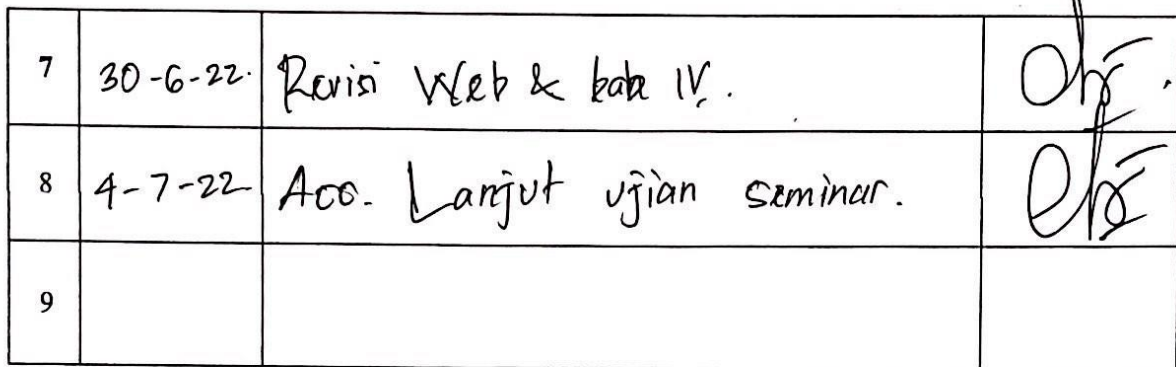 7 30-6-22. Revisi Web & bab IV.
8 4-7-22 Acc. Lanjut ujian seminar.
9